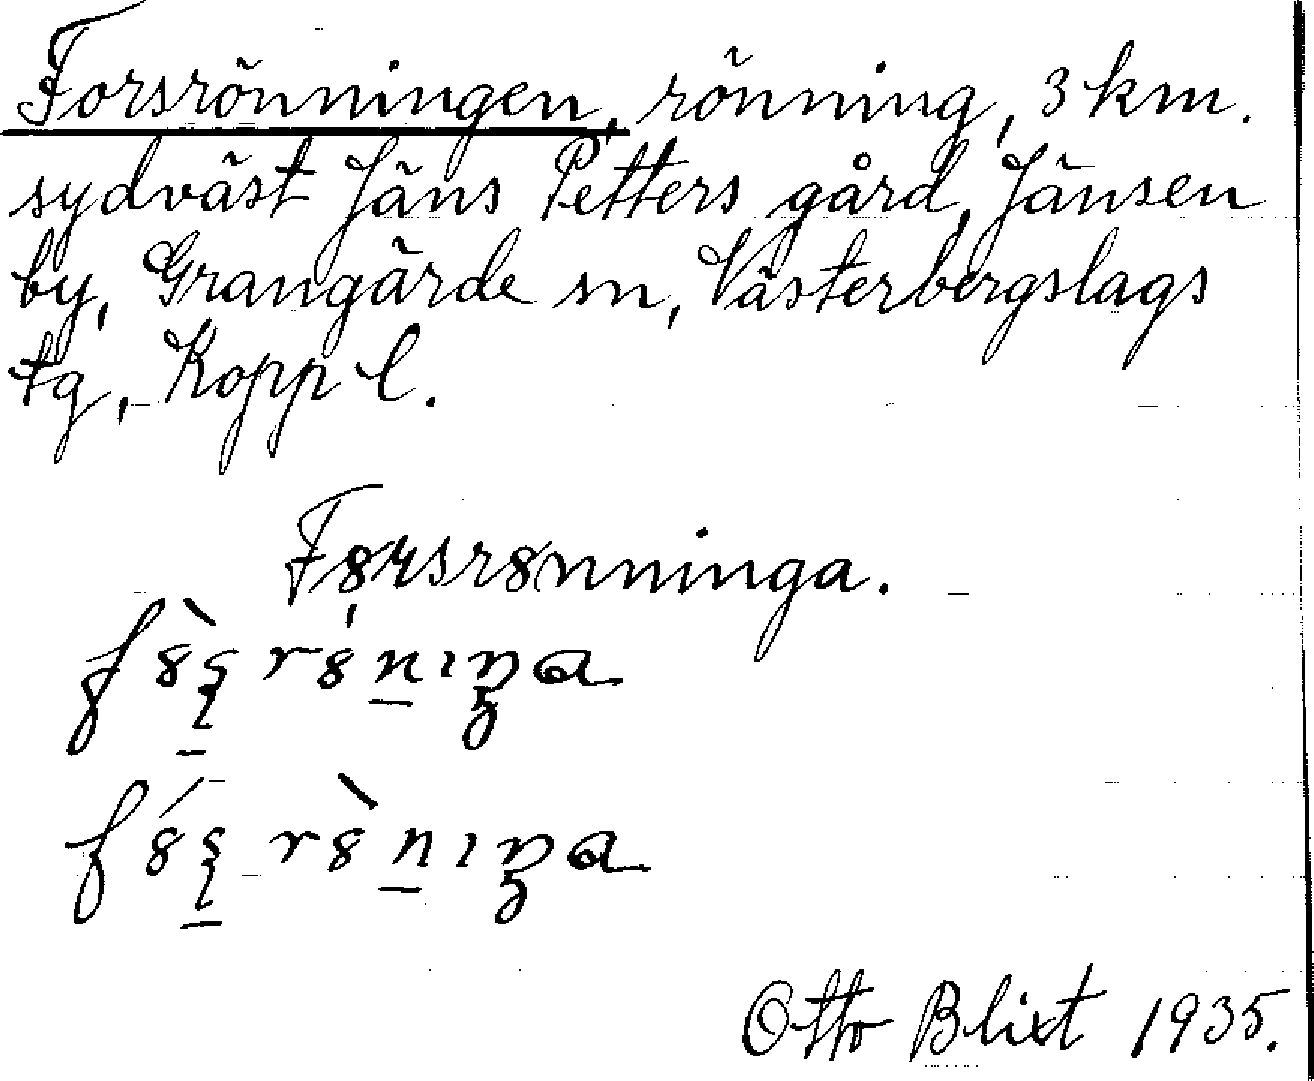 Forsrönningen, rönning, 3 km.
sydväst Jäns Petters gård, Jänsen
by, Grangärde sn, Västerbergslags
tg, Kopp l.
Fơrsrơnninga.
Otto Blixt 1935.